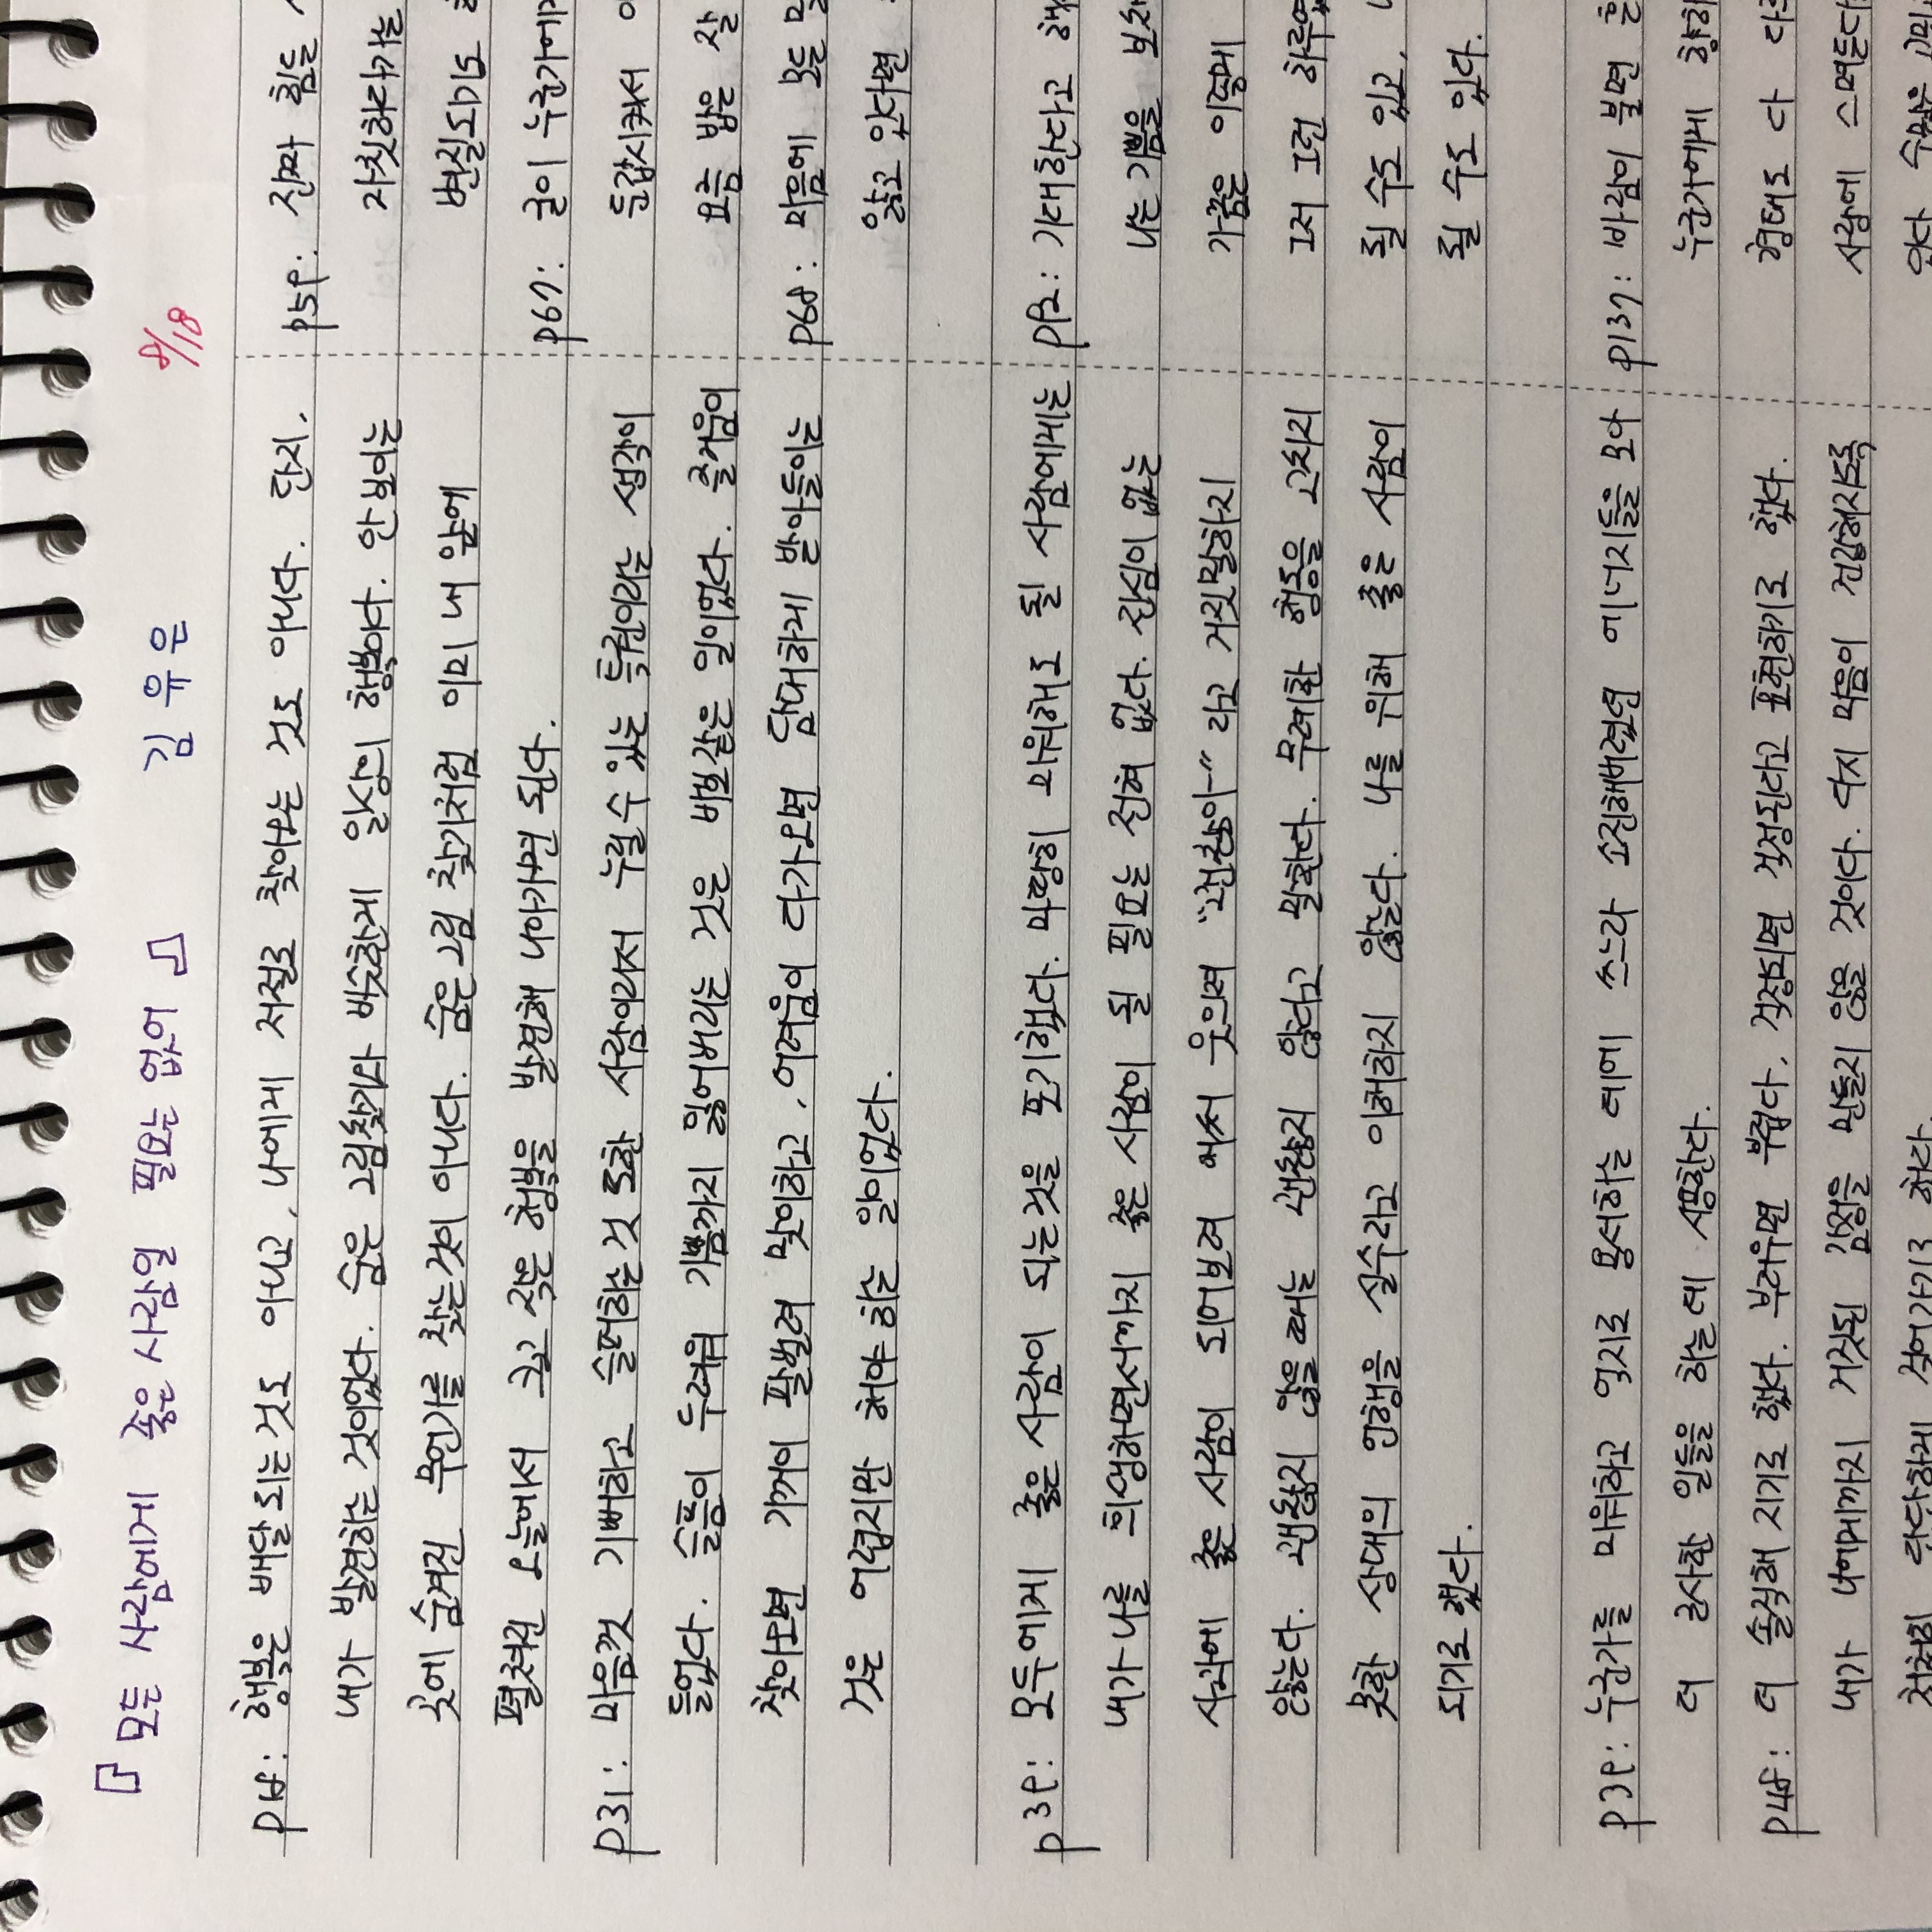 『 모든 사람에게 좋은 사람일 필요는 없어 』 김 유 은 8/18
p18: 행복은 배달되는 것도 아니고, 나에게 저절로 찾아오는 것도 아니다. 단지,
내가 발견하는 것이었다. 숨은 그림찾기와 비슷한게 일상의 행복이다. 안 보이는
곳에 숨겨진 무언가를 찾는것이 아니다. 숨은그림 찾기처럼 이미 내 앞에
펼쳐진 오늘에서 크고 작은 행복을 발견해 나아가면 된다.
p31: 마음껏 기뻐하고 슬퍼하는것 또한 사람이라서 누릴수 있는 특권이라는 생각이
들었다. 슬픔이 두려워 기쁨까지 잃어버리는 것은 바보같은 일이었다. 즐거움이
찾아오면 기꺼이 팔벌려 맞이하고, 어려움이 다가오면 담대하게 받아들이는
것은 어렵지만 해야 하는 일이었다.
p39: 모두에게 좋은 사람이 되는것을 포기했다. 마땅히 미워해도 될 사람에게는
내가 나를 희생하면서까지 좋은 사람이 될 필요는 전혀 없다. 진심이 없는
사과에 좋은 사람이 되어보려 애써 웃으며 "괜찮아~" 라고 거짓말하지
않는다. 괜찮지 않을때는 괜찮지 않다고 말한다. 무례한 행동을 고치지
못한 상대의 언행을 실수라고 이해하지 않는다. 나를 위해 좋은 사람이
되기로 했다.
p39: 누군가를 미워하고 억지로 용서하는 데에 쓰느라 소진해버렸던 에너지들을 모아
더 근사한 일들을 하는데 사용한다.
p48: 더 솔직해 지기로 했다. 부러우면 부럽다, 걱정되면 걱정된다고 표현하기로 했다.
내가 나에게까지 거짓된 감정을 만들지 않을 것이다. 다지 마음이 건강해지도록
천천히 단단하게 적어가기로 했다.
p59: 진짜 힘들
자칫하다가는
변질되기도
p67: 굳이 누군가에게
둔갑시켜서
요즘 밤은 잘
p68: 마음에 모든
앓고 있다면
p92: 기대한다고
나는 기쁨을
가끔은 이렇게
그저 그런
될 수도 있고,
될 수도 있다.
p137: 바람이 불면
누군가에게 향하
형태도 다
사랑에 스며든다